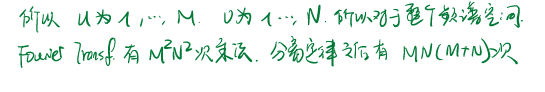 所以 u为1,…, M. v为1…, N. 所以对于整个频谱空间.
Fourier Transf. 有 M²N² 次乘法. 分离定律之后有 MN(M+N)次